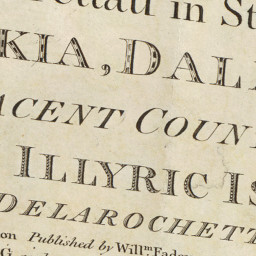 in St
KIA, DAL
ACENT COUN
ILLYRIC IS
DELAROCHETT
on Published by Will.m Fade